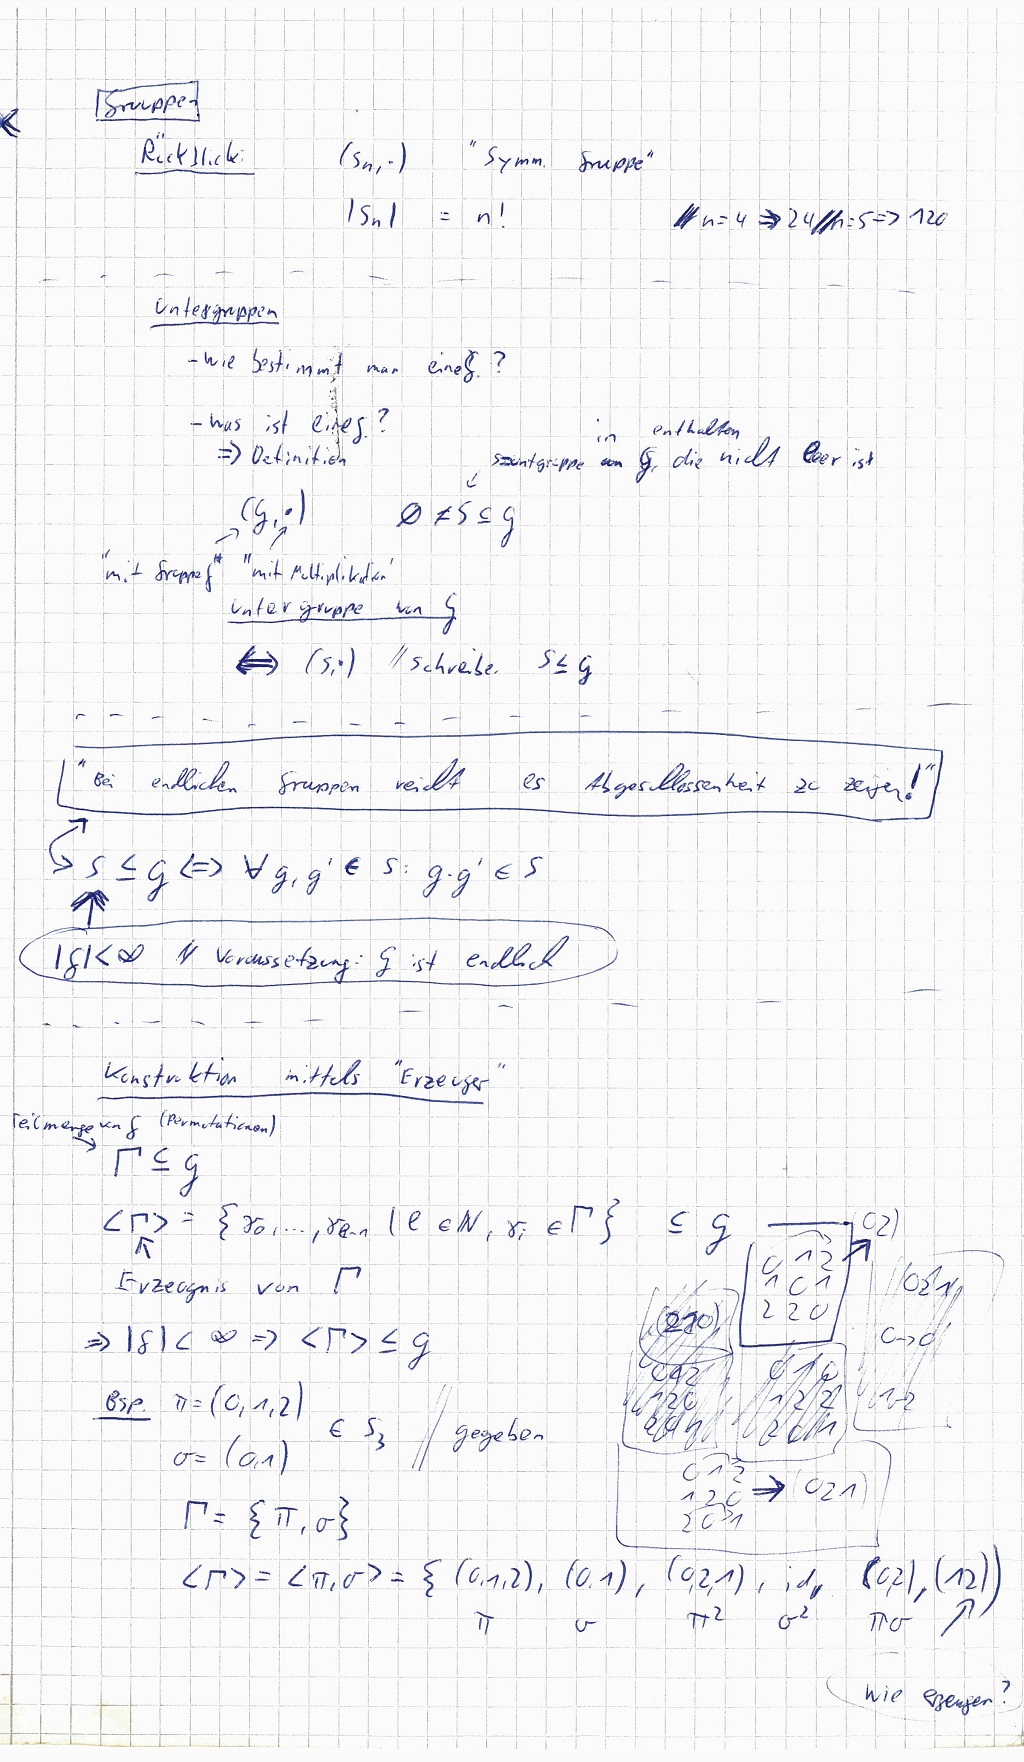 Gruppen
Rückblick: (Sn, ·) "Symm. Gruppe"
|Sn| = n! // n=4 => 24 // n=5 => 120
Untergruppen
- Wie bestimmt man eine G.?
- Was ist eine G.?
=> Definition
in enthalten
G, die nicht leer ist
(G, ·) ∅ ≠ S ⊆ G
"mit Gruppe G" "mit Multiplikation"
Untergruppe von G
<=> (S, ·) // schreibe: S ≤ G
"Bei endlichen Gruppen reicht es Abgeschlossenheit zu zeigen!"
S ≤ G <=> ∀ g, g' ∈ S: g·g' ∈ S
|G| < ∞ // Voraussetzung: G ist endlich
Konstruktion mittels "Erzeuger"
Teilmenge von G (Permutationen)
Γ ⊆ G
<Γ> = {γ0, ..., γℓ-1 | ℓ ∈ ℕ, γi ∈ Γ} ⊆ G (02)
0 1 2
1 0 1
2 2 0
Erzeugnis von Γ
=> |G| < ∞ => <Γ> ≤ G
Bsp. π = (0, 1, 2)
∈ S3 // gegeben
σ = (0,1)
0 1 2
1 2 0 => (0 2 1)
2 0 1
Γ = {π, σ}
<Γ> = <π, σ> = { (0,1,2), (0,1), (0,2,1), id, (0,2), (12) }
π σ π² σ² πσ
Wie erzeugen?